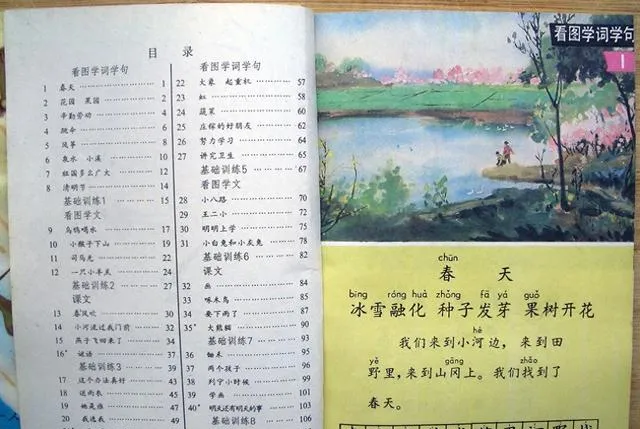 目 录
看图学词学句
1 春天 ………… 1
2 花园 果园 ………… 2
3 辛勤劳动 ………… 4
4 跳伞 ………… 6
5 风筝 ………… 8
6 泉水 小溪 ………… 10
7 祖国多么广大 ………… 12
8 清明节 ………… 14
基础训练1 ………… 15
看图学文
9 乌鸦喝水 ………… 17
10 小猴子下山 ………… 19
11 司马光 ………… 22
12 一只小羊羔 ………… 24
基础训练2 ………… 27
课文
13 春风吹 ………… 30
14 小河流过我门前 ………… 32
15 燕子飞回来了 ………… 34
16* 谜语 ………… 37
基础训练3 ………… 39
17 这个办法真好 ………… 43
18 送雨衣 ………… 45
19 她是谁 ………… 47
20 我选我 ………… 49
看图学词学句
22 大象 起重机 ………… 57
23 虹 ………… 58
24 蔬菜 ………… 60
25 庄稼的好朋友 ………… 62
26 努力学习 ………… 64
27 讲究卫生 ………… 65
基础训练5 ………… 67
看图学文
28 小八路 ………… 70
29 王二小 ………… 72
30 明明上学 ………… 75
31 小白兔和小灰兔 ………… 78
基础训练6 ………… 82
课文
32 画 ………… 84
33 啄木鸟 ………… 85
34 要下雨了 ………… 87
35* 大熊猫 ………… 90
基础训练7 ………… 93
36 锄禾 ………… 95
37 两个孩子 ………… 96
38 列宁小时候 ………… 99
39 学画 ………… 101
40* 明天还有明天的事 ………… 103
基础训练8 ………… 106
看图学词学句
1
chūn
春 天
bīng róng huà zhǒng fā yá guǒ
冰雪融化 种子发芽 果树开花
hé
我们来到小河边，来到田
yě gāng zhǎo
野里，来到山冈上。我们找到了
春天。